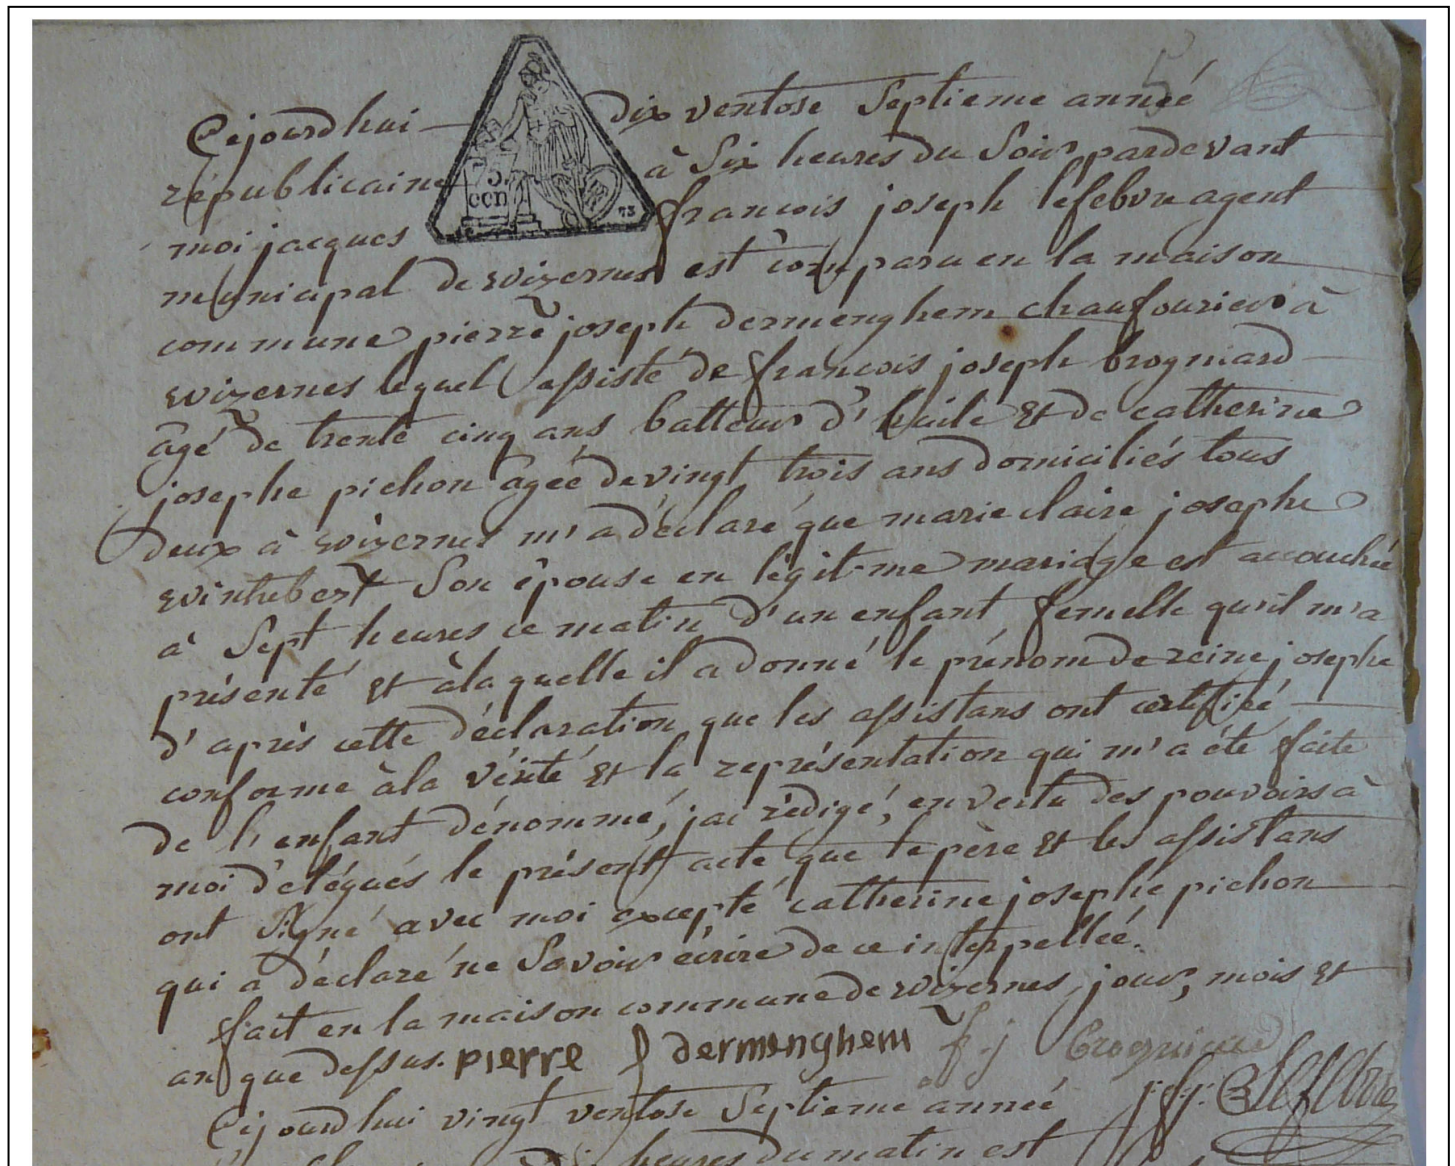 5
Cejourdhui dix ventose Septieme anneé
républicaine à Six heures du Soir pardevant
75.
cen
73
moi jacques francois joseph lefebvre agent
municipal de wizernes est comparu en la maison
commune pierre joseph dermenghem chaufourier à
wizernes lequel assisté de francois joseph brogniard
âgé de trente cinq ans batteur d'huile et de catherine
josephe pichon agéé de vingt trois ans domiciliés tous
deux à wizernes m'a déclaré que marie claire josephe
wintrebert Son épouse en légitime mariage est accouchée
à Sept heures ce matin d'un enfant femelle qu'il m'a
présenté et à laquelle il a donné le prénom de reine josephe
d'après cette déclaration que les assistans ont certifié
conforme à la vérité et la représentation qui m'a été faite
de l'enfant dénommé, jai rédigé, en vertu des pouvoirs à
moi délégués le présent acte que le père et les assistans
ont Signé avec moi excepté catherine josephe pichon
qui a déclaré ne Savoir écrire de ce interpelléé.
fait en la maison commune de wizernes, jour, mois et
an que dessus. pierre j dermenghem f j brogniard
j. f. j. lefebvre
Cejourdhui vingt ventose Septieme anneé
heures du matin est